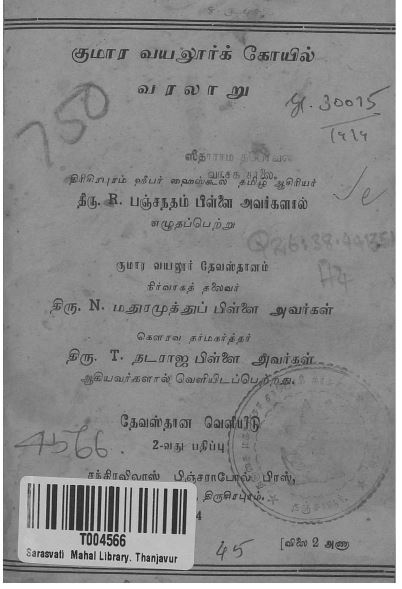 குமார வயலூர்க் கோயில்
வரலாறு
750
30015
ஸீதாராம
வாசக சாலை.
திரிசிரபுரம் ஹீபர் ஹைஸ்கூல் தமிழ் ஆசிரியர்
திரு. R. பஞ்சநதம் பிள்ளை அவர்களால்
எழுதப்பெற்று
குமார வயலூர் தேவஸ்தானம்
நிர்வாகத் தலைவர்
திரு. N. மதுரமுத்துப் பிள்ளை அவர்கள்
கௌரவ தர்மகர்த்தர்
திரு. T. நடராஜ பிள்ளை அவர்கள்
ஆகியவர்களால் வெளியிடப்பெற்றது.
தேவஸ்தான வெளியீடு
2-வது பதிப்பு
4566
சந்திரவிலாஸ் பிஞ்சராபோல் பிரஸ்,
திருசிரபுரம்.
4
T004566
Sarasvati Mahal Library, Thanjavur
45
[விலை 2 அணா